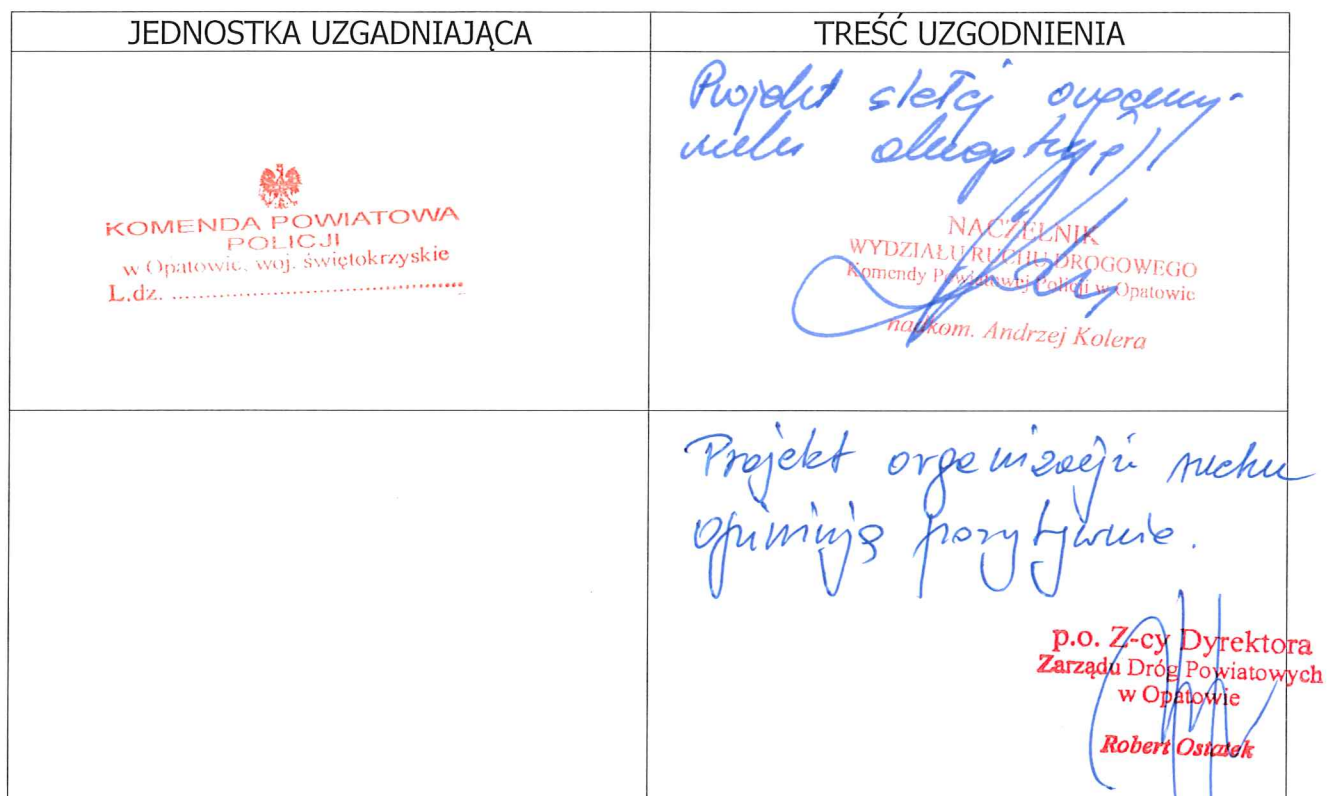 JEDNOSTKA UZGADNIAJĄCA
TREŚĆ UZGODNIENIA
KOMENDA POWIATOWA
POLICJI
w Opatowie, woj. świętokrzyskie
L.dz. ..........................................
Projekt stałej organiz.
ruchu akceptuję
NACZELNIK
WYDZIAŁU RUCHU DROGOWEGO
Komendy Powiatowej Policji w Opatowie
nadkom. Andrzej Kolera
Projekt organizacji ruchu
opiniuję pozytywnie.
p.o. Z-cy Dyrektora
Zarządu Dróg Powiatowych
w Opatowie
Robert Ostatek